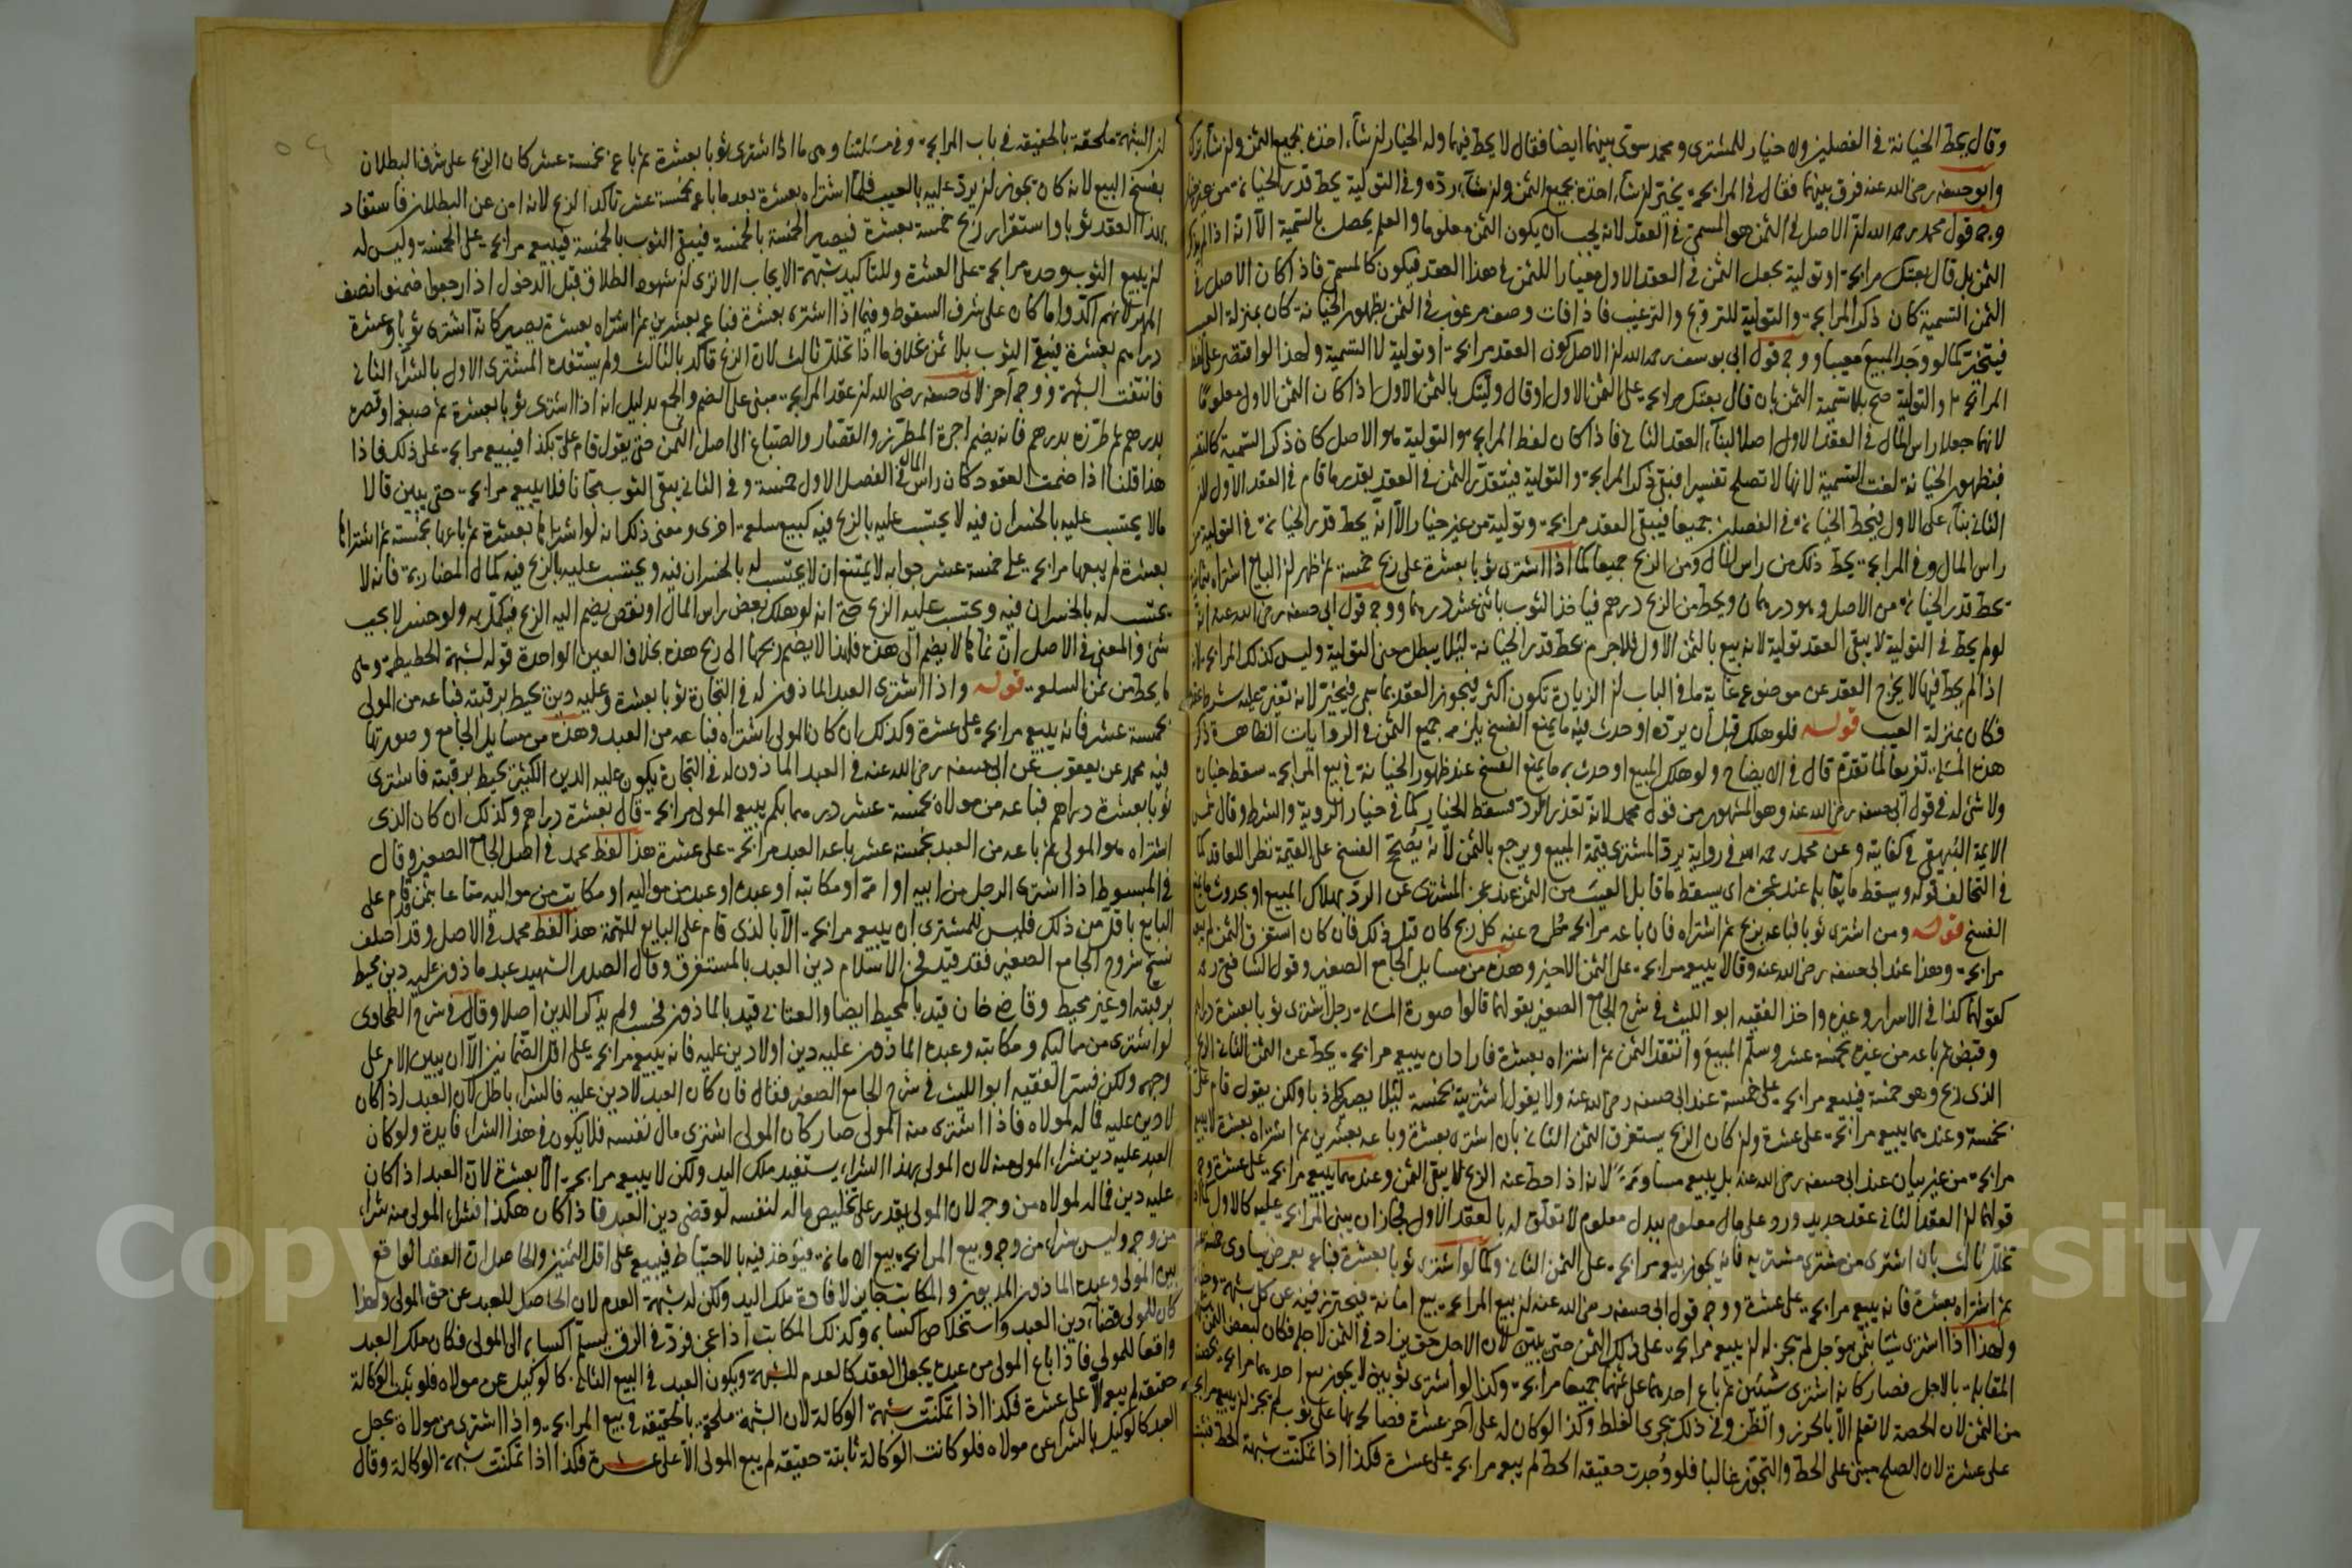 وقال يحط الخيانة في الفصلين ولا خيار للمشتري ومحمد سوى بينهما ايضا فقال لا يحط فيهما وله الخيار ان شاء اخذه بجميع الثمن وان شاء ترك
وابو حنيفة رضي الله عنه فرق بينهما فقال في المرابحة يخير ان شاء اخذه بجميع الثمن وان شاء رده وفي التولية يحط قدر الخيانة من غير خيار
وجه قول محمد رحمه الله ان الاصل في الثمن هو المسمى في العقد لانه يجب ان يكون الثمن معلوما والعلم يحصل بالتسمية الا انه اذا لم يذكر
الثمن بل قال بعتك مرابحة او تولية يجعل الثمن في العقد الاول معيارا للثمن في هذا العقد فيكون كالمسمى فاذا كان الاصل في
الثمن التسمية كان ذكر المرابحة والتولية للترويج والترغيب فاذا فات وصف مرغوب في الثمن بظهور الخيانة كان بمنزلة العيب
فيتخير كما لو وجد المبيع معيبا ووجه قول ابي يوسف رحمه الله ان الاصل كون العقد مرابحة او تولية لا التسمية ولهذا لو اقتصر على لفظ
المرابحة والتولية صح بلا تسمية الثمن بان قال بعتك مرابحة على الثمن الاول او قال وليتك بالثمن الاول اذا كان الثمن الاول معلوما
لانهما جعلا راس المال في العقد الاول اصلا لبناء العقد الثاني فاذا كان لفظ المرابحة والتولية هو الاصل كان ذكر التسمية كالتفسير
فبظهور الخيانة لغت التسمية لانها لا تصلح تفسيرا فبقي ذكر المرابحة والتولية فيتقدر الثمن في العقد بقدر ما قام في العقد الاول لان
الثاني بناء على الاول فيحط الخيانة في الفصلين جميعا فيبقى العقد مرابحة وتولية من غير خيار الا انه يحط قدر الخيانة في التولية من
راس المال وفي المرابحة يحط ذلك من راس المال ومن الربح جميعا كما اذا اشترى ثوبا بعشرة على ربح خمسة ثم ظهر ان البايع اشتراه بثمانية
يحط قدر الخيانة من الاصل وهو درهمان ويحط من الربح درهم فياخذ الثوب باثنى عشر درهما ووجه قول ابي حنيفة رضي الله عنه انه
لو لم يحط في التولية لا يبقى العقد تولية لانه بيع بالثمن الاول فلا جرم يحط قدر الخيانة ليلا يبطل معنى التولية وليس كذلك المرابحة لانه
اذا لم يحط فيها لا يخرج العقد عن موضوعه غاية ما في الباب ان الزيادة تكون اكثر فيجوز العقد بما سمى فيتخير لانه تغير عليه شرط عقده
فكان بمنزلة العيب قوله فلو هلك قبل ان يرده او حدث فيه ما يمنع الفسخ يلزمه جميع الثمن في الروايات الظاهرة ذكر
هذه المسئلة تفريعا لما تقدم قال في الايضاح ولو هلك المبيع او حدث به ما يمنع الفسخ عند ظهور الخيانة في بيع المرابحة سقط خياره
ولا شئ له في قول ابي حنيفة رضي الله عنه وهو المشهور من قول محمد لانه تعذر الرد فسقط الخيار كما في خيار الروية والشرط وقال شمس
الايمة البيهقي في كفايته وعن محمد رحمه الله في رواية يرد المشتري قيمة المبيع ويرجع بالثمن لانه يصح الفسخ على القيمة نظرا للعاقد كما
في التحالف قوله ويسقط ما يقابله عند عجزه اي يسقط ما قابل العيب من الثمن عند عجز المشتري عن الرد بهلاك المبيع او بحدوث ما يمنع
الفسخ قوله ومن اشترى ثوبا فباعه بربح ثم اشتراه فان باعه مرابحة طرح عنه كل ربح كان قبل ذلك فان كان استغرق الثمن لم يبعه
مرابحة وهذا عند ابي حنيفة رضي الله عنه وقالا يبيعه مرابحة على الثمن الاخير وهذه من مسايل الجامع الصغير وقول الشافعي رحمه
كقولهما كذا في الاسرار وغيره واخذ الفقيه ابو الليث في شرح الجامع الصغير بقولهما قالوا صورة المسئلة رجل اشترى ثوبا بعشرة دراهم
وقبض ثم باعه من غيره بخمسة عشر وسلم المبيع وانتقد الثمن ثم اشتراه بعشرة فاراد ان يبيعه مرابحة يحط عن الثمن الثاني الربح
الذي ربح وهو خمسة فيبيعه مرابحة على خمسة عند ابي حنيفة رضي الله عنه ولا يقول اشتريته بخمسة ليلا يصير كاذبا ولكن يقول قام علي
بخمسة وعندهما يبيعه مرابحة على عشرة وان كان الربح يستغرق الثمن الثاني بان اشترى بعشرة وباعه بعشرين ثم اشتراه بعشرة لا يبيعه
مرابحة من غير بيان عند ابي حنيفة رضي الله عنه بل يبيعه مساومة لانه اذا حط عنه الربح لا يبقى الثمن وعندهما يبيعه مرابحة على عشرة وجه
قولهما ان العقد الثاني عقد جديد ورد على مال معلوم ببدل معلوم لا تعلق له بالعقد الاول فجاز ان يبنى المرابحة عليه كالاول كما اذا
تخلل ثالث بان اشترى من مشتري مشتريه فانه يجوز بيعه مرابحة على الثمن الثاني وكما لو اشترى ثوبا بعشرة فباعه بعرض يساوي خمسة عشر
ثم اشتراه بعشرة فانه يبيعه مرابحة على عشرة ووجه قول ابي حنيفة رضي الله عنه ان بيع المرابحة بيع امانة فيحترز فيه عن كل شبهة
ولهذا اذا اشترى شيئا بثمن مؤجل لم يجز له ان يبيعه مرابحة على ذلك الثمن حتى يبين لان الاجل حق يزاد في الثمن لاجله فكان لبعض الثمن شبهة
المقابلة بالاجل فصار كانه اشترى شيئين ثم باع احدهما على ثمنهما جميعا مرابحة وكذا لو اشترى ثوبين لا يجوز بيع احدهما مرابحة بحصته
من الثمن لان الحصة لا تعلم الا بالحزر والظن وفي ذلك يجري الغلط وكذا لو كان له على آخر عشرة فصالحه بها على ثوب لم يجز ان يبيعه مرابحة
على عشرة لان الصلح مبني على الحط والتجوز غالبا فلو وجدت حقيقة الحط لم يبعه مرابحة على عشرة فكذا اذا تمكنت شبهة الحط
لان الشبهة ملحقة بالحقيقة في باب المرابحة وفي مسئلتنا وهي ما اذا اشترى ثوبا بعشرة ثم باعه بخمسة عشر كان الربح على شرف البطلان
بفسخ البيع لانه كان يجوز ان يرد عليه بالعيب فلما اشتراه بعشرة بعد ما باعه بخمسة عشر تاكد الربح لانه امن عن البطلان فاستفاد
بهذا العقد ثوبا واستقرار ربح خمسة بعشرة فيصير الخمسة بالخمسة فيبقى الثوب بالخمسة فيبيعه مرابحة على الخمسة وليس له
ان يبيع الثوب وحده مرابحة على العشرة وللتاكيد شبهة الايجاب الا ترى ان شهود الطلاق قبل الدخول اذا رجعوا ضمنوا نصف
المهر لانهم اكدوا ما كان على شرف السقوط وفيما اذا اشترى بعشرة فباعه بعشرين ثم اشتراه بعشرة يصير كانه اشترى ثوبا وعشرة
دراهم بعشرة فيبقى الثوب بلا ثمن بخلاف ما اذا تخلل ثالث لان الربح تاكد بالثالث ولم يستفده المشتري الاول بالشراء الثاني
فانتفت الشبهة ووجه آخر لابي حنيفة رضي الله عنه ان عقد المرابحة مبني على الضم والجمع بدليل انه اذا اشترى ثوبا بعشرة ثم صبغه او قصره
بدرهم ثم طرزه بدرهم فانه يضم اجرة المطرز والقصار والصباغ الى اصل الثمن حتى يقول قام علي بكذا فيبيعه مرابحة على ذلك فاذا
هذا قلنا اذا ضمت العقود كان راس المال في الفصل الاول خمسة وفي الثاني يبقى الثوب مجانا فلا يبيعه مرابحة حتى يبين قالا
ما لا يحتسب عليه بالخسران فيه لا يحتسب عليه بالربح فيه كبيع سلعة اخرى ومعنى ذلك انه لو اشتراها بعشرة ثم باعها بخمسة ثم اشتراها
بعشرة لم يبعها مرابحة على خمسة عشر جوابه لا يمتنع ان لا يحتسب له بالخسران فيه ويحتسب عليه بالربح فيه كمال المضاربة فانه لا
يحتسب له بالخسران فيه ويحتسب عليه الربح حتى انه لو هلك بعض راس المال او نقص يضم اليه الربح فيكمل به ولو خسر لا يجب
شئ والمعنى في الاصل ان ثمنها لا يضم الى هذه فلهذا لا يضم ربحها الى ربح هذه بخلاف العين الواحدة قوله لشبهة الحطيطة وهي
ما يحط من ثمن السلعة قوله واذا اشترى العبد الماذون له في التجارة ثوبا بعشرة وعليه دين يحيط برقبته فباعه من المولى
بخمسة عشر فانه يبيعه مرابحة على عشرة وكذلك ان كان المولى اشتراه فباعه من العبد وهذه من مسايل الجامع وصورتها
فيه محمد عن يعقوب عن ابي حنيفة رضي الله عنه في العبد الماذون له في التجارة يكون عليه الدين الكثير يحيط برقبته فاشترى
ثوبا بعشرة دراهم فباعه من مولاه بخمسة عشر درهما بكم يبيعه المولى مرابحة قال بعشرة دراهم وكذلك ان كان الذي
اشتراه هو المولى ثم باعه من العبد بخمسة عشر باعه العبد مرابحة على عشرة هذا لفظ محمد في اصل الجامع الصغير وقال
في المبسوط اذا اشترى الرجل من ابيه او امه او مكاتبه او عبده او عبد من مواليه او مكاتب من مواليه متاعا بثمن قد قام على
البايع باقل من ذلك فليس للمشتري ان يبيعه مرابحة الا بالذي قام على البايع للتهمة هذا لفظ محمد في الاصل وقد اختلف
نسخ شروح الجامع الصغير فقد قيد فخر الاسلام دين العبد بالمستغرق وقال الصدر الشهيد عبد ماذون عليه دين يحيط
برقبته او غير محيط وقاضي خان قيد بالمحيط ايضا والعتابي قيد بالماذون فحسب ولم يذكر الدين اصلا وقال في شرح الطحاوي
لو اشترى من مماليكه ومكاتبه وعبده الماذون عليه دين اولا دين عليه فانه يبيعه مرابحة على اقل الضمانين الا ان يبين الامر على
وجهه ولكن فسر الفقيه ابو الليث في شرح الجامع الصغير فقال فان كان العبد لا دين عليه فالشراء باطل لان العبد اذا كان
لا دين عليه فماله لمولاه فاذا اشترى منه المولى صار كان المولى اشترى مال نفسه فلا يكون في هذا الشراء فايدة ولو كان
العبد عليه دين شراء المولى منه لان المولى بهذا الشراء يستفيد ملك اليد ولكن لا يبيعه مرابحة الا بعشرة لان العبد اذا كان
عليه دين فماله لمولاه من وجه لان المولى يقدر على تخليص ماله لنفسه لو قضى دين العبد فاذا كان هكذا فشراء المولى منه شراء
من وجه وليس شراء من وجه وبيع المرابحة بيع الامانة فيؤخذ فيه بالاحتياط فيبيع على اقل الثمنين والحاصل ان العقد الواقع
بين المولى وعبده الماذون المديون والمكاتب جايز لافادة ملك اليد ولكن له شبهة العدم لان الحاصل للعبد عن حق المولى ولهذا
كان للمولى قضاء دين العبد واستخلاص اكسابه وكذلك المكاتب اذا عجز فرد في الرق يسلم اكسابه الى المولى فكان ملك العبد
واقعا للمولى فاذا باع المولى من عبده يجعل العقد كالعدم للشبهة ويكون العبد في البيع الثاني كالوكيل عن مولاه فلو ثبت الوكالة
حقيقة لم يبعه الا على عشرة فكذا اذا تمكنت شبهة الوكالة لان الشبهة ملحقة بالحقيقة في بيع المرابحة واذا اشترى من مولاه يجعل
العبد كالوكيل بالشراء عن مولاه فلو كانت الوكالة ثابتة حقيقة لم يبع المولى الا على عشرة فكذا اذا تمكنت شبهة الوكالة وقال